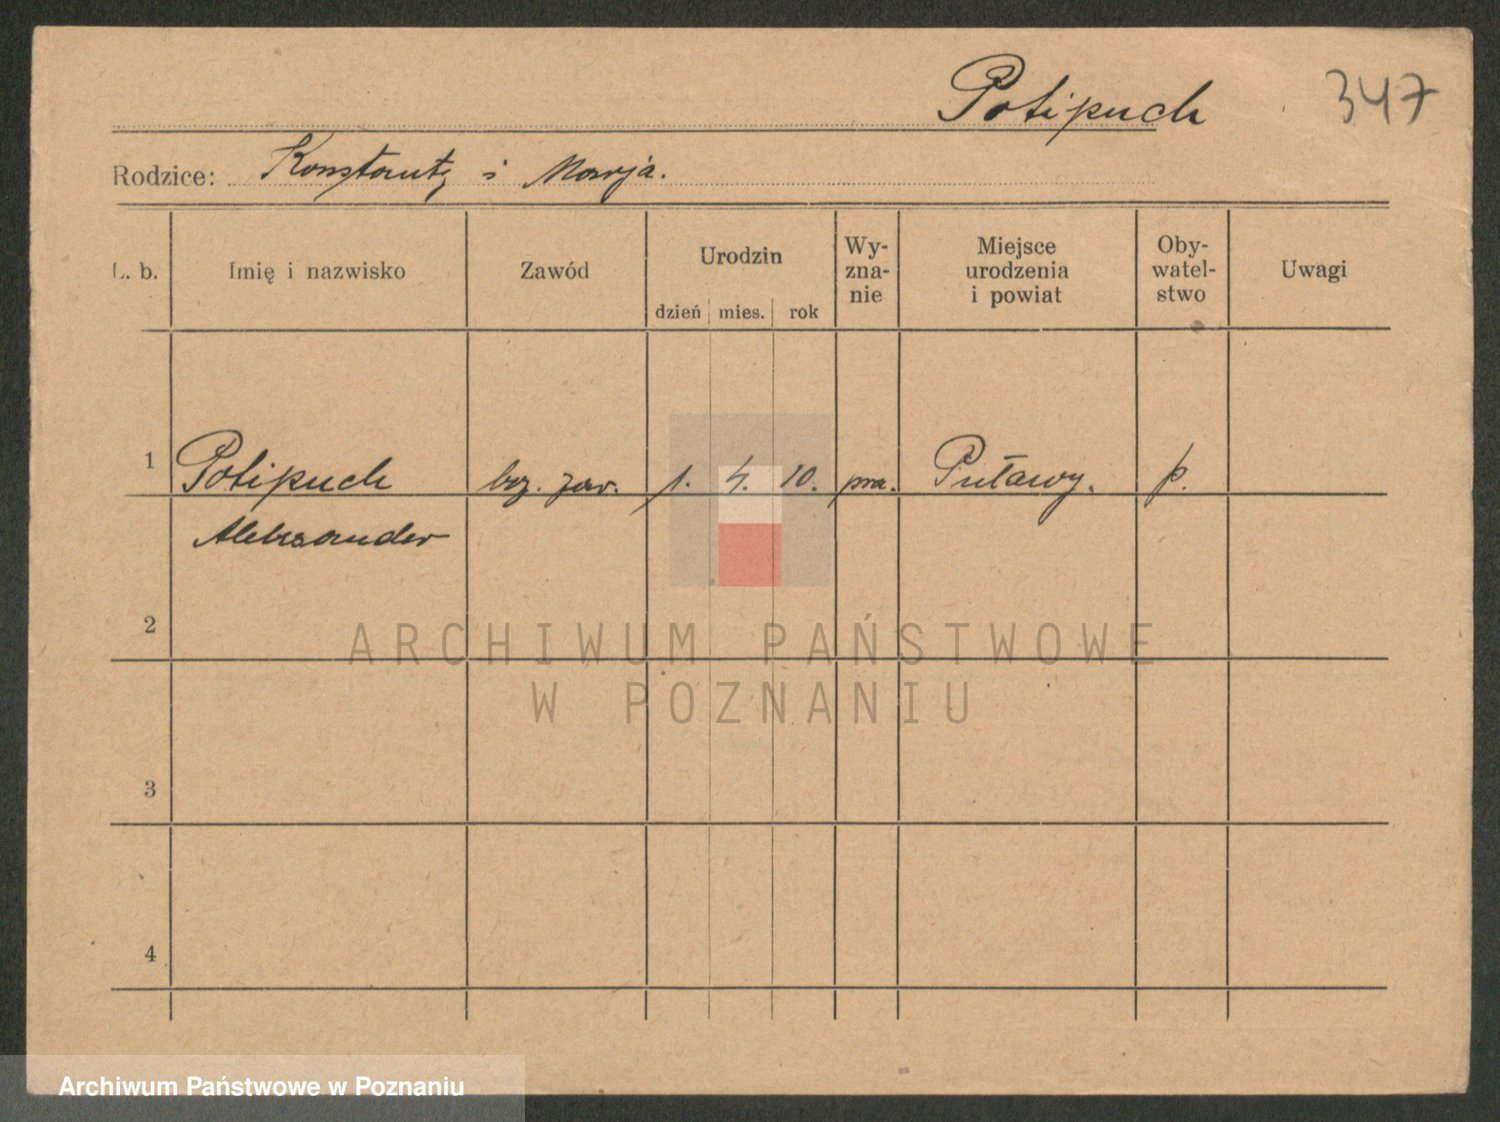 Potipuch 347
Rodzice: Konstanty i Marja.
L. b. Imię i nazwisko Zawód Urodzin dzień mies. rok Wy-zna-nie Miejsce urodzenia i powiat Oby-watel-stwo Uwagi
1 Potipuch bez. zaw. 1. 4. 10. pra. Puławy. p.
Aleksander
2
ARCHIWUM PAŃSTWOWE
W POZNANIU
3
4
Archiwum Państwowe w Poznaniu